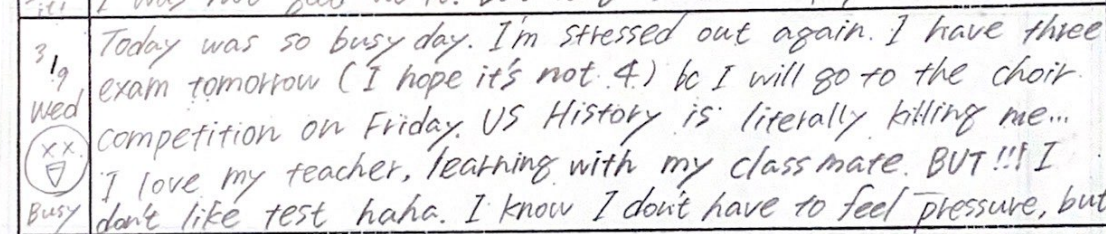 3/9
Wed
Busy
Today was so busy day. I'm stressed out again. I have three
exam tomorrow (I hope it's not 4) bc I will go to the choir
competition on Friday. US History is literally killing me...
I love my teacher, learning with my classmate. BUT!!! I
don't like test haha. I know I don't have to feel pressure, but